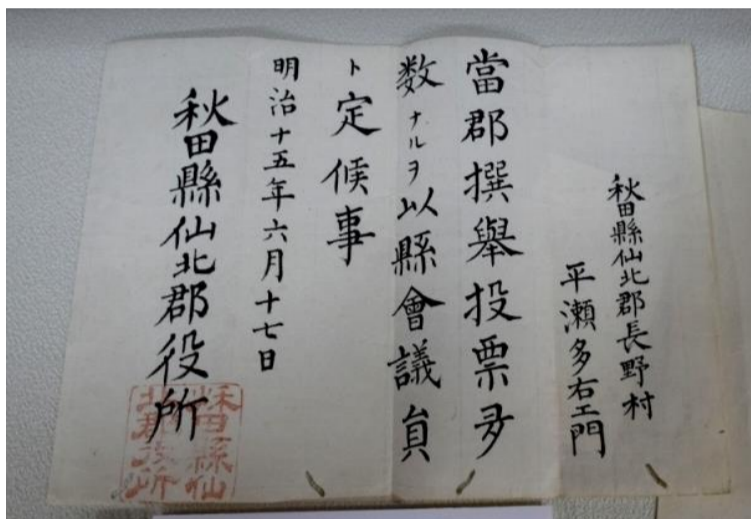 秋田縣仙北郡長野村
平瀬多右エ門
當郡撰舉投票多
数ナルヲ以縣會議員
ト定候事
明治十五年六月十七日
秋田縣仙北郡役所
秋田縣仙
北郡役所